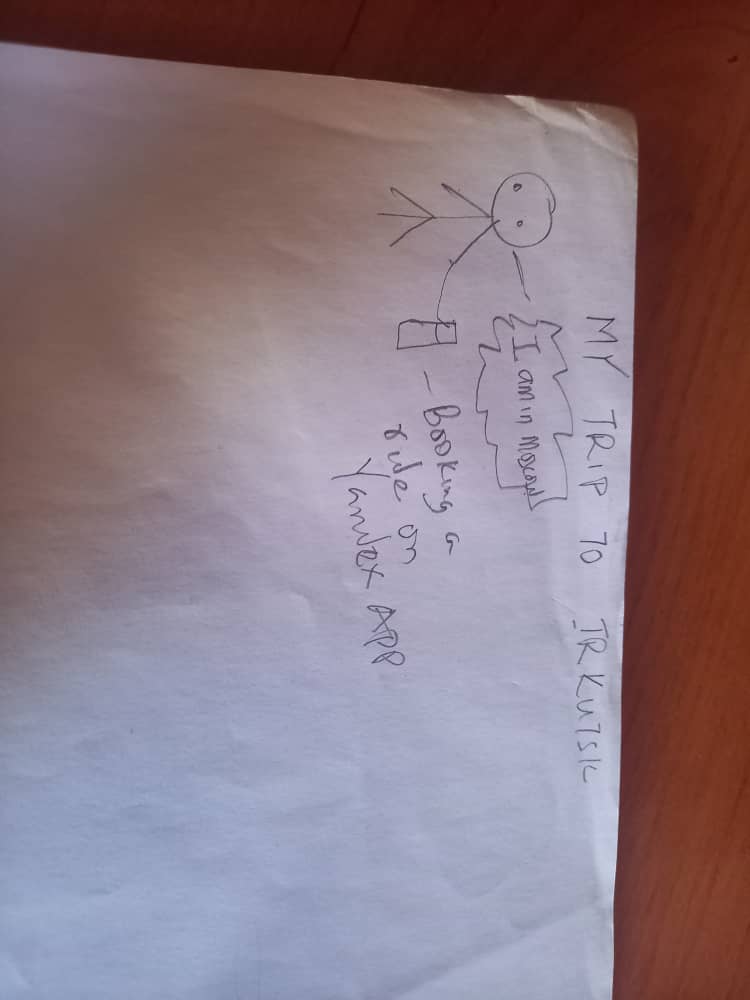 MY TRIP TO IRKUTSK
I am in Moscow
- Booking a
ride on
Yandex APP